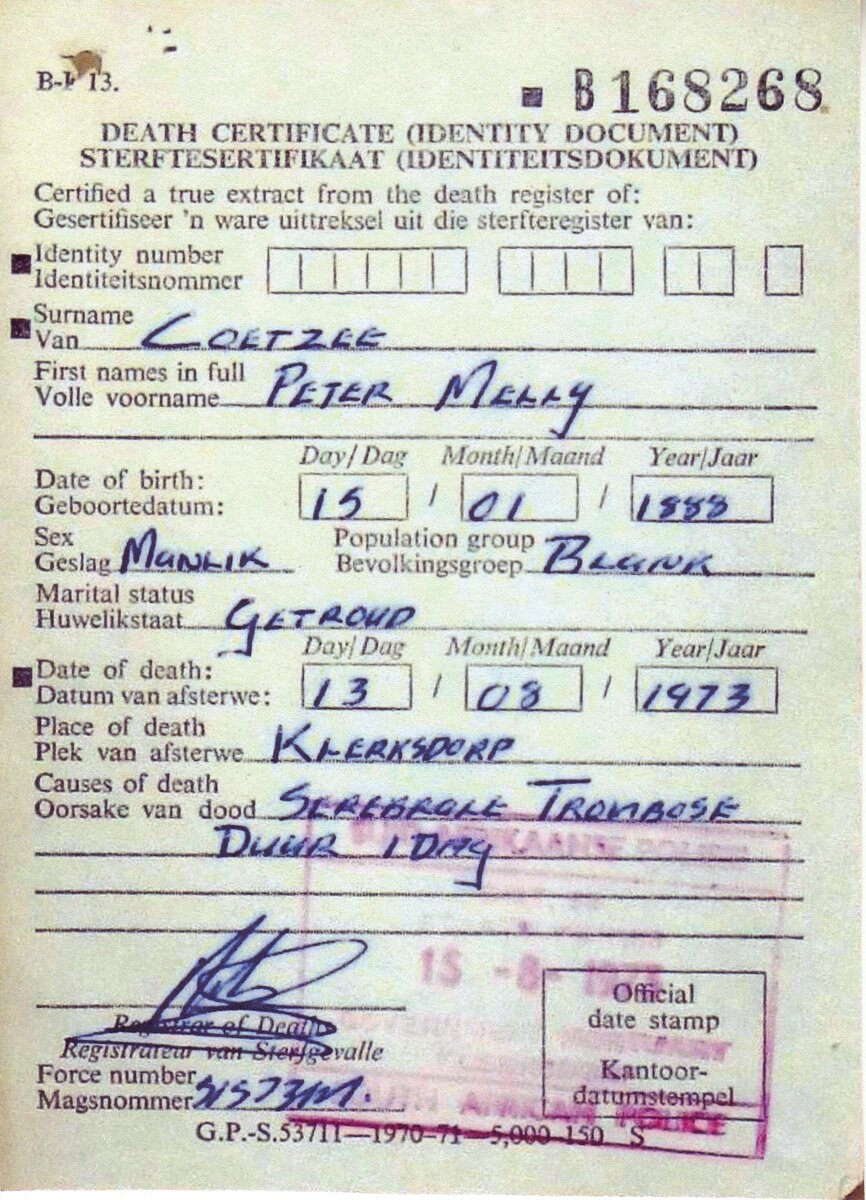 B-I 13.
B168268
DEATH CERTIFICATE (IDENTITY DOCUMENT)
STERFTESERTIFIKAAT (IDENTITEITSDOKUMENT)
Certified a true extract from the death register of:
Gesertifiseer 'n ware uittreksel uit die sterfteregister van:
Identity number
Identiteitsnommer
Surname
Van COETZEE
First names in full
Volle voorname PETER MELLY
Day/Dag Month/Maand Year/Jaar
Date of birth:
Geboortedatum: 15 / 01 / 1888
Sex Population group
Geslag MANLIK Bevolkingsgroep BLANK
Marital status
Huwelikstaat GETROUD
Day/Dag Month/Maand Year/Jaar
Date of death:
Datum van afsterwe: 13 / 08 / 1973
Place of death
Plek van afsterwe KLERKSDORP
Causes of death
Oorsake van dood SEREBRALE TROMBOSE
DUUR 1 DAY
15 -8-
Official
date stamp
Registrar of Death
Registrateur van Sterfgevalle
Kantoor-
datumstempel
Force number
Magsnommer
SOUTH AFRICAN POLICE
G.P.-S.53711—1970-71—5,000-150 S